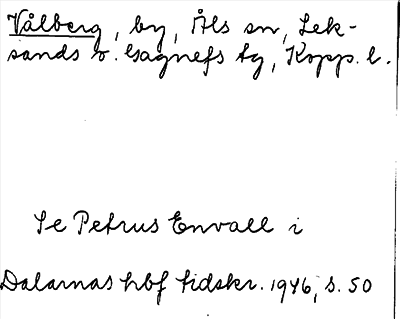 Vålberg, by, Åls sn, Lek-
sands o. Gagnefs tg, Kopp. l.
Se Petrus Envall i
Dalarnas hbf tidskr. 1946, s. 50